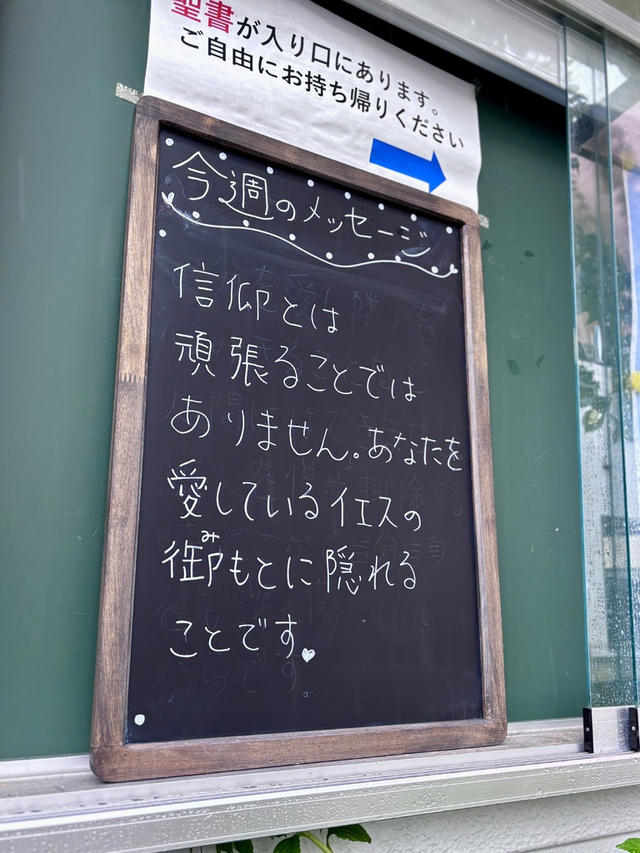 聖書が入り口にあります。
ご自由にお持ち帰りください
今週のメッセージ
信仰とは
頑張ることでは
ありません。あなたを
愛しているイエスの
御みもとに隠れる
ことです。